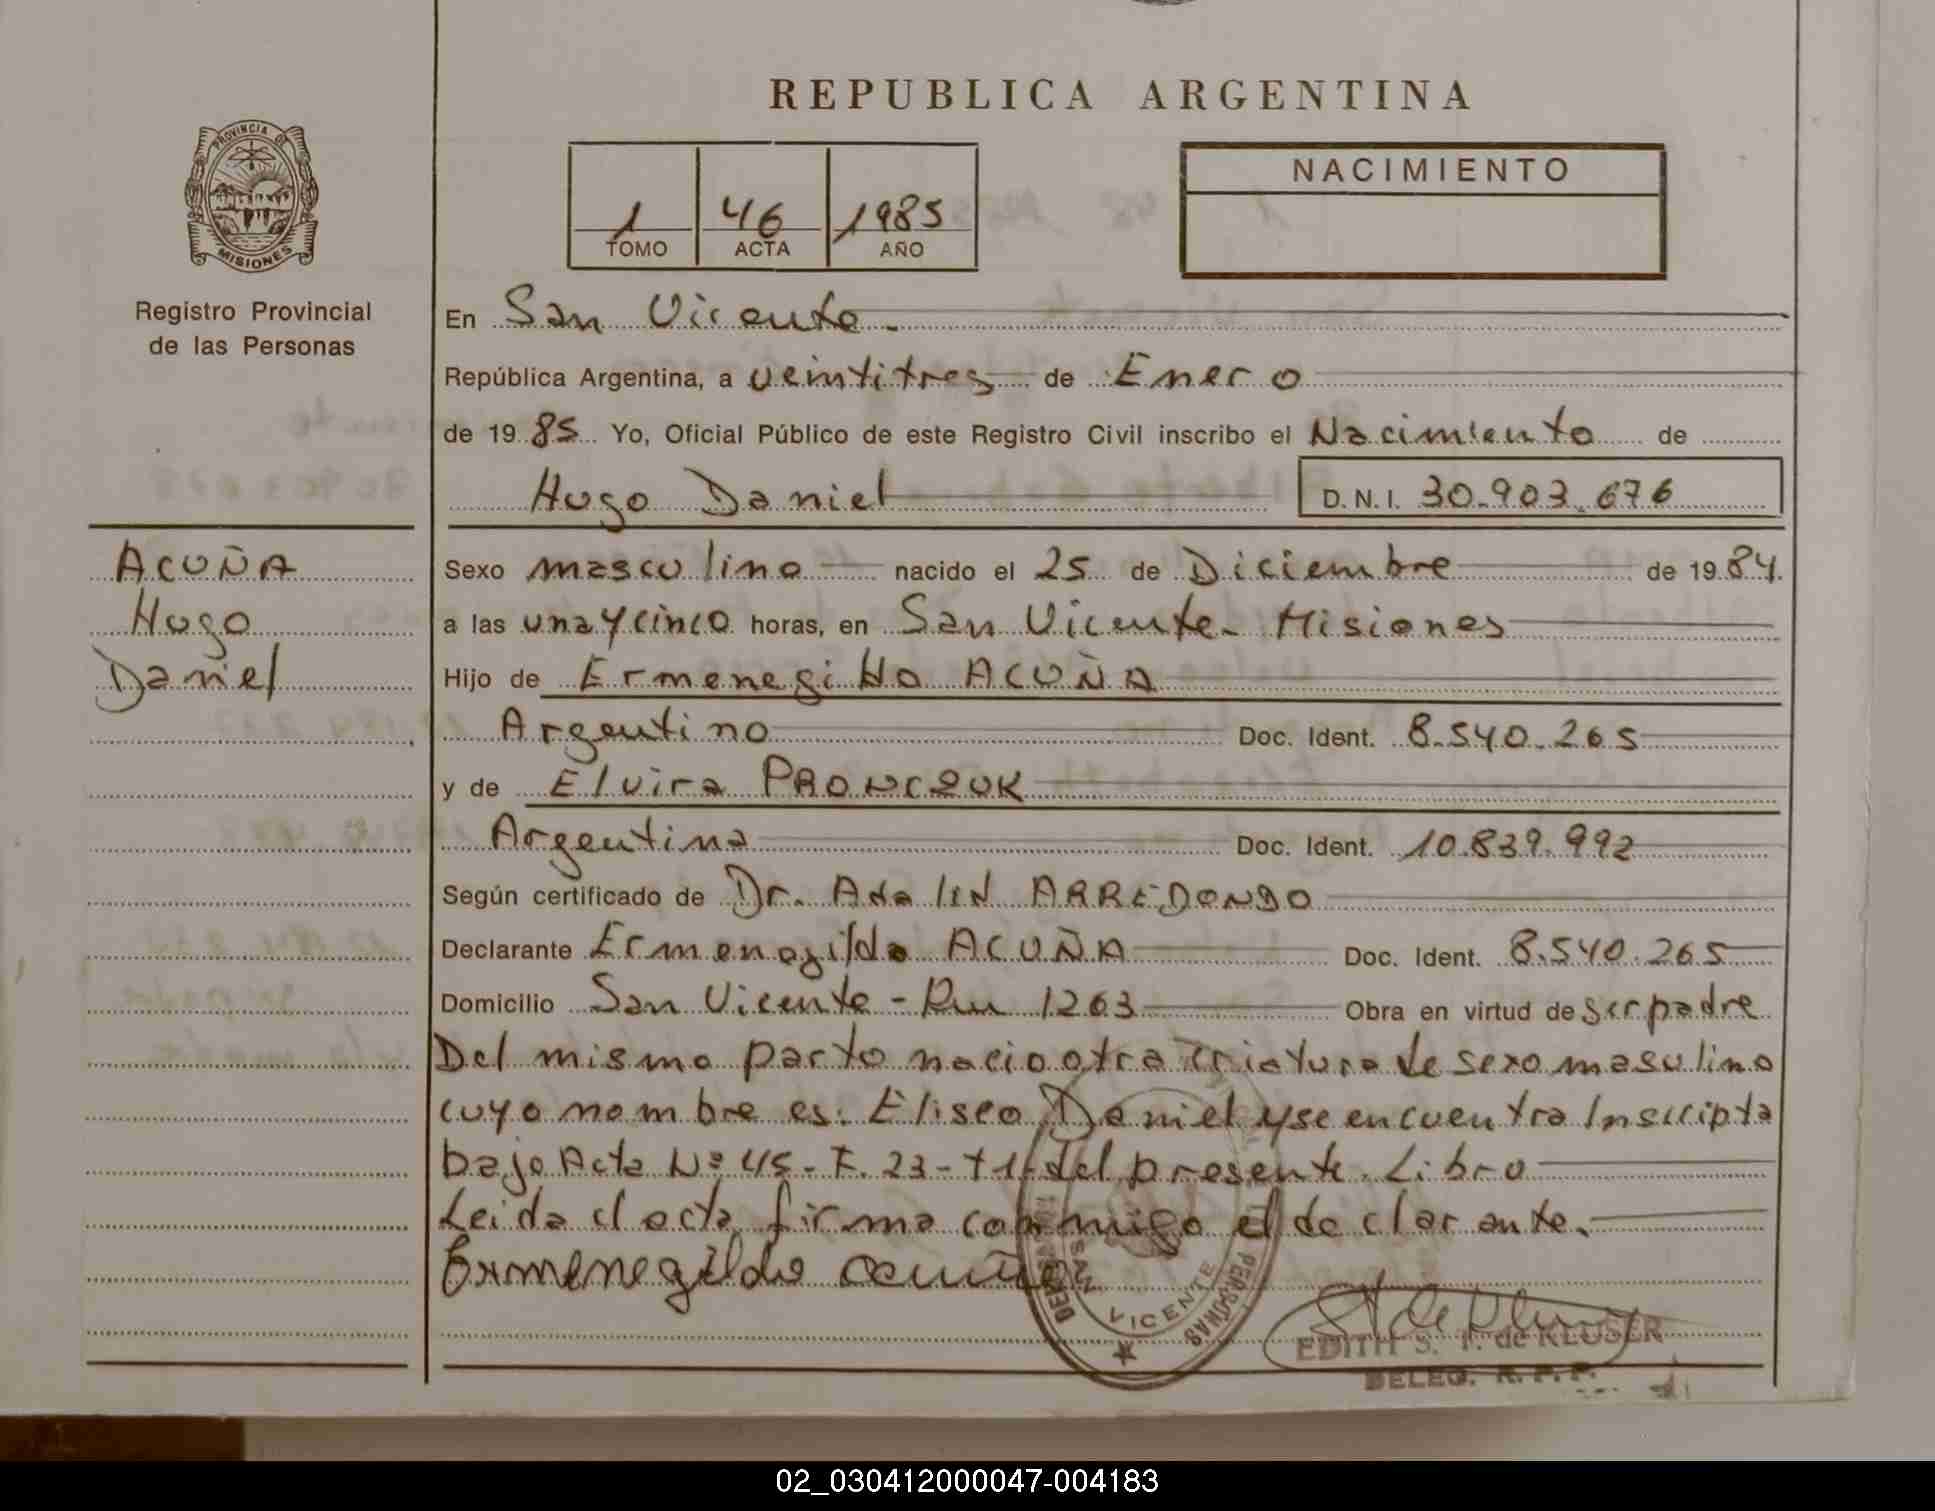 REPUBLICA ARGENTINA
PROVINCIA DE
MISIONES
Registro Provincial
de las Personas
1 46 1985
TOMO ACTA AÑO
NACIMIENTO
En San Vicente.
República Argentina, a veintitres de Enero
de 1985 Yo, Oficial Público de este Registro Civil inscribo el Nacimiento de
Hugo Daniel D.N.I. 30.903.676
ACUÑA
Hugo
Daniel
Sexo masculino nacido el 25 de Diciembre de 1984.
a las una y cinco horas, en San Vicente - Misiones
Hijo de Ermenegildo ACUÑA
Argentino Doc. Ident. 8.540.265
y de Elvira PRONCZUK
Argentina Doc. Ident. 10.839.992
Según certificado de Dr. ARREDONDO
Declarante Ermenegildo ACUÑA Doc. Ident. 8.540.265
Domicilio San Vicente - 1263 Obra en virtud de ser padre
Del mismo parto nacio otra criatura de sexo masculino
cuyo nombre es: Eliseo Daniel y se encuentra Inscripta
bajo Acta Nº 45 - F. 23 - T 1 - del presente Libro
Leida el acta firma conmigo el declarante.
Ermenegildo acuña
SAN VICENTE
PERSONAS
EDITH S. T. de KLUSER
DELEG. R. P. P.
02_030412000047-004183